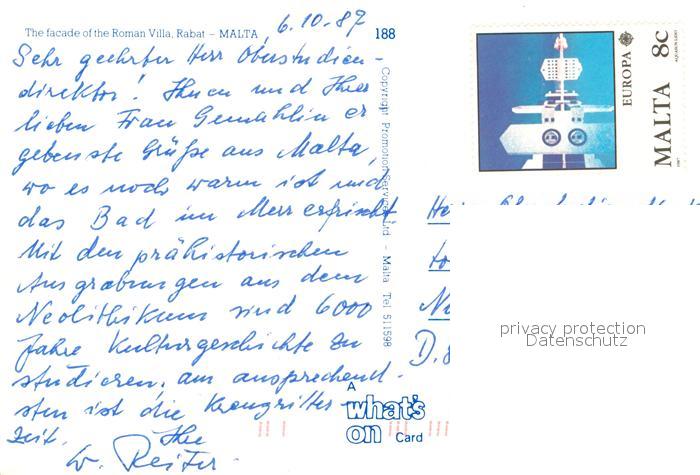 The facade of the Roman Villa, Rabat – MALTA
6.10.87
188
Sehr geehrter Herr Oberstudien-
direktor! Ihnen und Ihrer
lieben Frau Gemahlin er
gebenste Grüße aus Malta,
wo es noch warm ist und
das Bad im Meer erfrischt
Mit den prähistorischen
Ausgrabungen aus dem
Neolithikum sind 6000
Jahre Kulturgeschichte zu
studieren, am ansprechend-
sten ist die Kreuzritter-
zeit. Ihr
W. Reiter
Copyright Promotion Services Ltd – Malta Tel 511598
A
what's
on Card
EUROPA
MALTA 8c
1987
D.8
privacy protection
Datenschutz